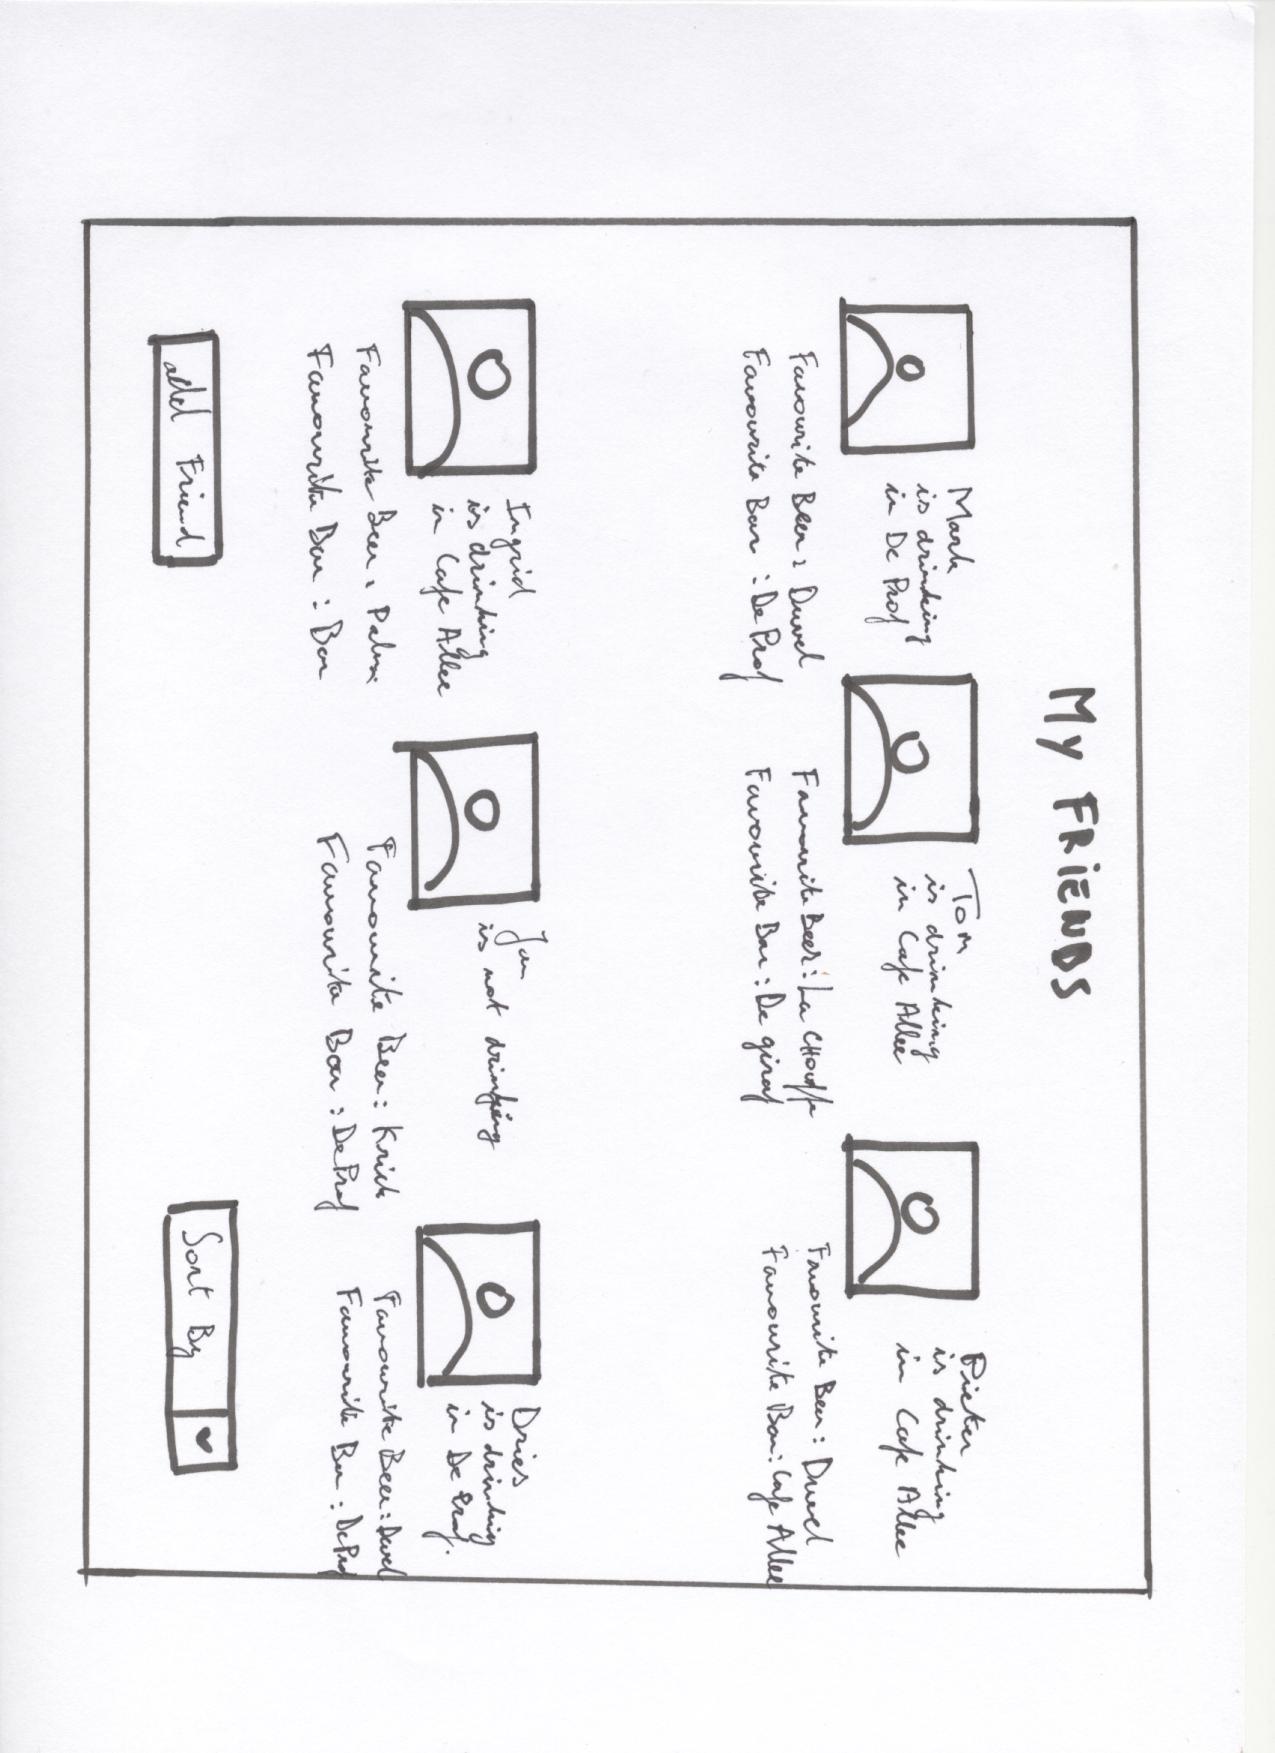 My FRiENDS
Mark
is drinking
in De Prof
Favourite Beer: Duvel
Favourite Bar : De Prof
Tom
is drinking
in Cafe Allee
Favourite Beer: La CHouffe
Favourite Bar : De giraf
Pieter
is drinking
in Cafe Allee
Favourite Beer: Duvel
Favourite Bar: Cafe Allee
Ingrid
is drinking
in Cafe Allee
Favourite Beer: Palm
Favourite Bar : Bar
Jan
is not drinking
Favourite Beer: Kriek
Favourite Bar : De Prof
Dries
is drinking
in De Prof.
Favourite Beer: Duvel
Favourite Bar : De Prof
add Friend
Sort By